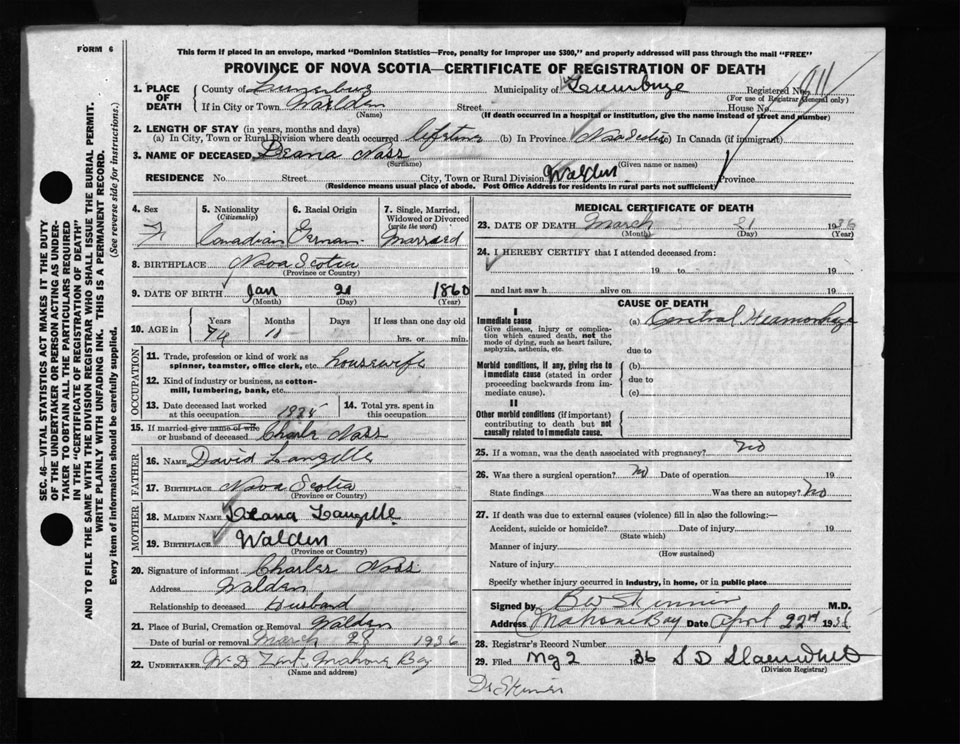 FORM 6
This form if placed in an envelope, marked "Dominion Statistics—Free, penalty for improper use $300," and properly addressed will pass through the mail "FREE"
PROVINCE OF NOVA SCOTIA—CERTIFICATE OF REGISTRATION OF DEATH
SEC. 46—VITAL STATISTICS ACT MAKES IT THE DUTY
OF THE UNDERTAKER OR PERSON ACTING AS UNDER-
TAKER TO OBTAIN ALL THE PARTICULARS REQUIRED
IN THE "CERTIFICATE OF REGISTRATION OF DEATH"
AND TO FILE THE SAME WITH THE DIVISION REGISTRAR WHO SHALL ISSUE THE BURIAL PERMIT.
WRITE PLAINLY WITH UNFADING INK. THIS IS A PERMANENT RECORD.
Every item of information should be carefully supplied. (See reverse side for instructions.)
1. PLACE OF DEATH
County of Lunenburg Municipality of Lunenburg Registered No. 911
(For use of Registrar General only)
If in City or Town Walden Street House No.
(Name) (If death occurred in a hospital or institution, give the name instead of street and number)
2. LENGTH OF STAY (in years, months and days)
(a) In City, Town or Rural Division where death occurred lifetime (b) In Province Nova Scotia (c) In Canada (if immigrant)
3. NAME OF DECEASED Deana Nass
(Surname) (Given name or names)
RESIDENCE No. Street City, Town or Rural Division Walden Province
(Residence means usual place of abode. Post Office Address for residents in rural parts not sufficient)
4. Sex F
5. Nationality (Citizenship) Canadian
6. Racial Origin German
7. Single, Married, Widowed or Divorced (write the word) Married
8. BIRTHPLACE Nova Scotia
(Province or Country)
9. DATE OF BIRTH Jan 21 1860
(Month) (Day) (Year)
10. AGE in Years Months Days If less than one day old
hrs. or min.
OCCUPATION
11. Trade, profession or kind of work as
spinner, teamster, office clerk, etc. housewife
12. Kind of industry or business, as cotton-
mill, lumbering, bank, etc.
13. Date deceased last worked
at this occupation
14. Total yrs. spent in
this occupation
15. If married give name of wife
or husband of deceased Charles Nass
FATHER
16. NAME David Langille
17. BIRTHPLACE Nova Scotia
(Province or Country)
MOTHER
18. MAIDEN NAME Deana Langille
19. BIRTHPLACE Walden
(Province or Country)
20. Signature of informant Charles Nass
Address Walden
Relationship to deceased Husband
21. Place of Burial, Cremation or Removal Walden
Date of burial or removal March 28 1936
22. UNDERTAKER W. D. Zink Mahone Bay
(Name and address)
MEDICAL CERTIFICATE OF DEATH
23. DATE OF DEATH March 21 1936
(Month) (Day) (Year)
24. I HEREBY CERTIFY that I attended deceased from:
19 to 19
and last saw h alive on 19
CAUSE OF DEATH
I
Immediate cause
Give disease, injury or complica-
tion which caused death, not the
mode of dying, such as heart failure,
asphyxia, asthenia, etc.
(a) Cerebral Heamorrhage
due to
Morbid conditions, if any, giving rise to
immediate cause (stated in order
proceeding backwards from im-
mediate cause).
(b)
due to
(c)
II
Other morbid conditions (if important)
contributing to death but not
causally related to immediate cause.
25. If a woman, was the death associated with pregnancy? no
26. Was there a surgical operation? no Date of operation 19
State findings Was there an autopsy? no
27. If death was due to external causes (violence) fill in also the following:—
Accident, suicide or homicide? Date of injury 19
(State which)
Manner of injury
(How sustained)
Nature of injury
Specify whether injury occurred in industry, in home, or in public place
Signed by B W Skinner M.D.
Address Mahone Bay Date April 22nd 1936
28. Registrar's Record Number
29. Filed 2 1936 S D
(Division Registrar)
Dr Skinner